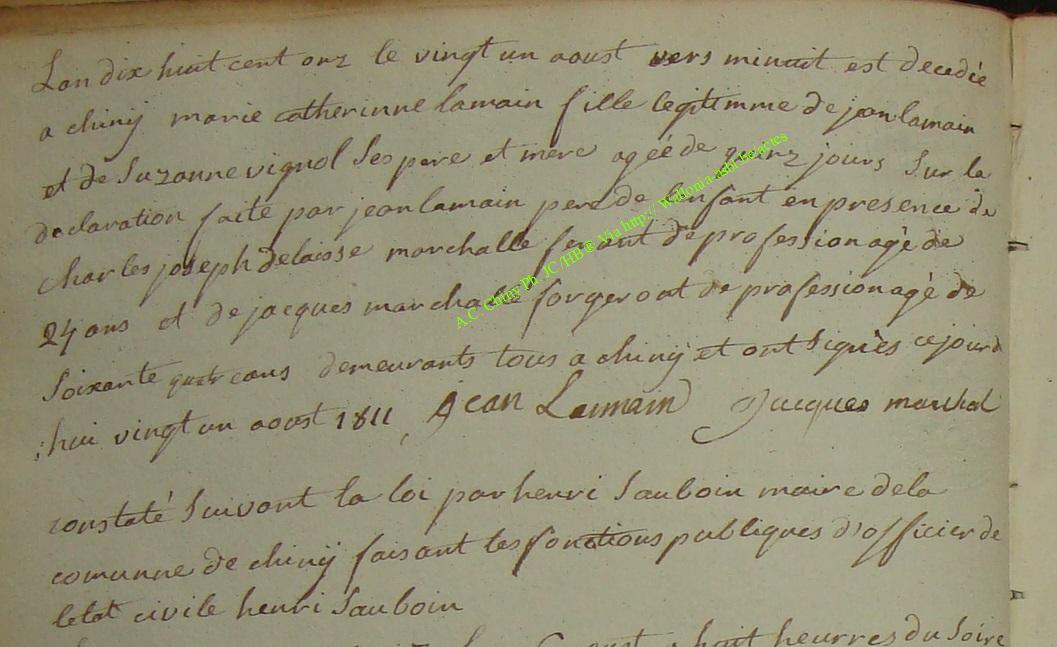 Lan dix huit cent onz le vingt un aoust vers minuit est decedée
a chinÿ marie catherinne lamain fille legitimme de jean lamain
et de Suzanne vignol Ses pere et mere agéé de quinz jours Sur la
declaration faite par jean lamain pere de lenfant en presence de
charles joseph delaisse marchalle ferant de profession agè de
24 ans et de jacques marchalle forgeront de profession agè de
Soixante quatre ans demeurants tous a chinÿ et ont Signès cejourd
hui vingt un aoust 1811 Jean Lamain Jacques marchal
constaté Suivant la loi par henri Sauboin maire dela
comunne de chinÿ faisant les fonctions publiques d'officier de
letat civile henri Sauboin
huit heurres du Soire
A.C. Chiny Ph. JC /HB ® Via http:// Wallonia-asbl.be/actes